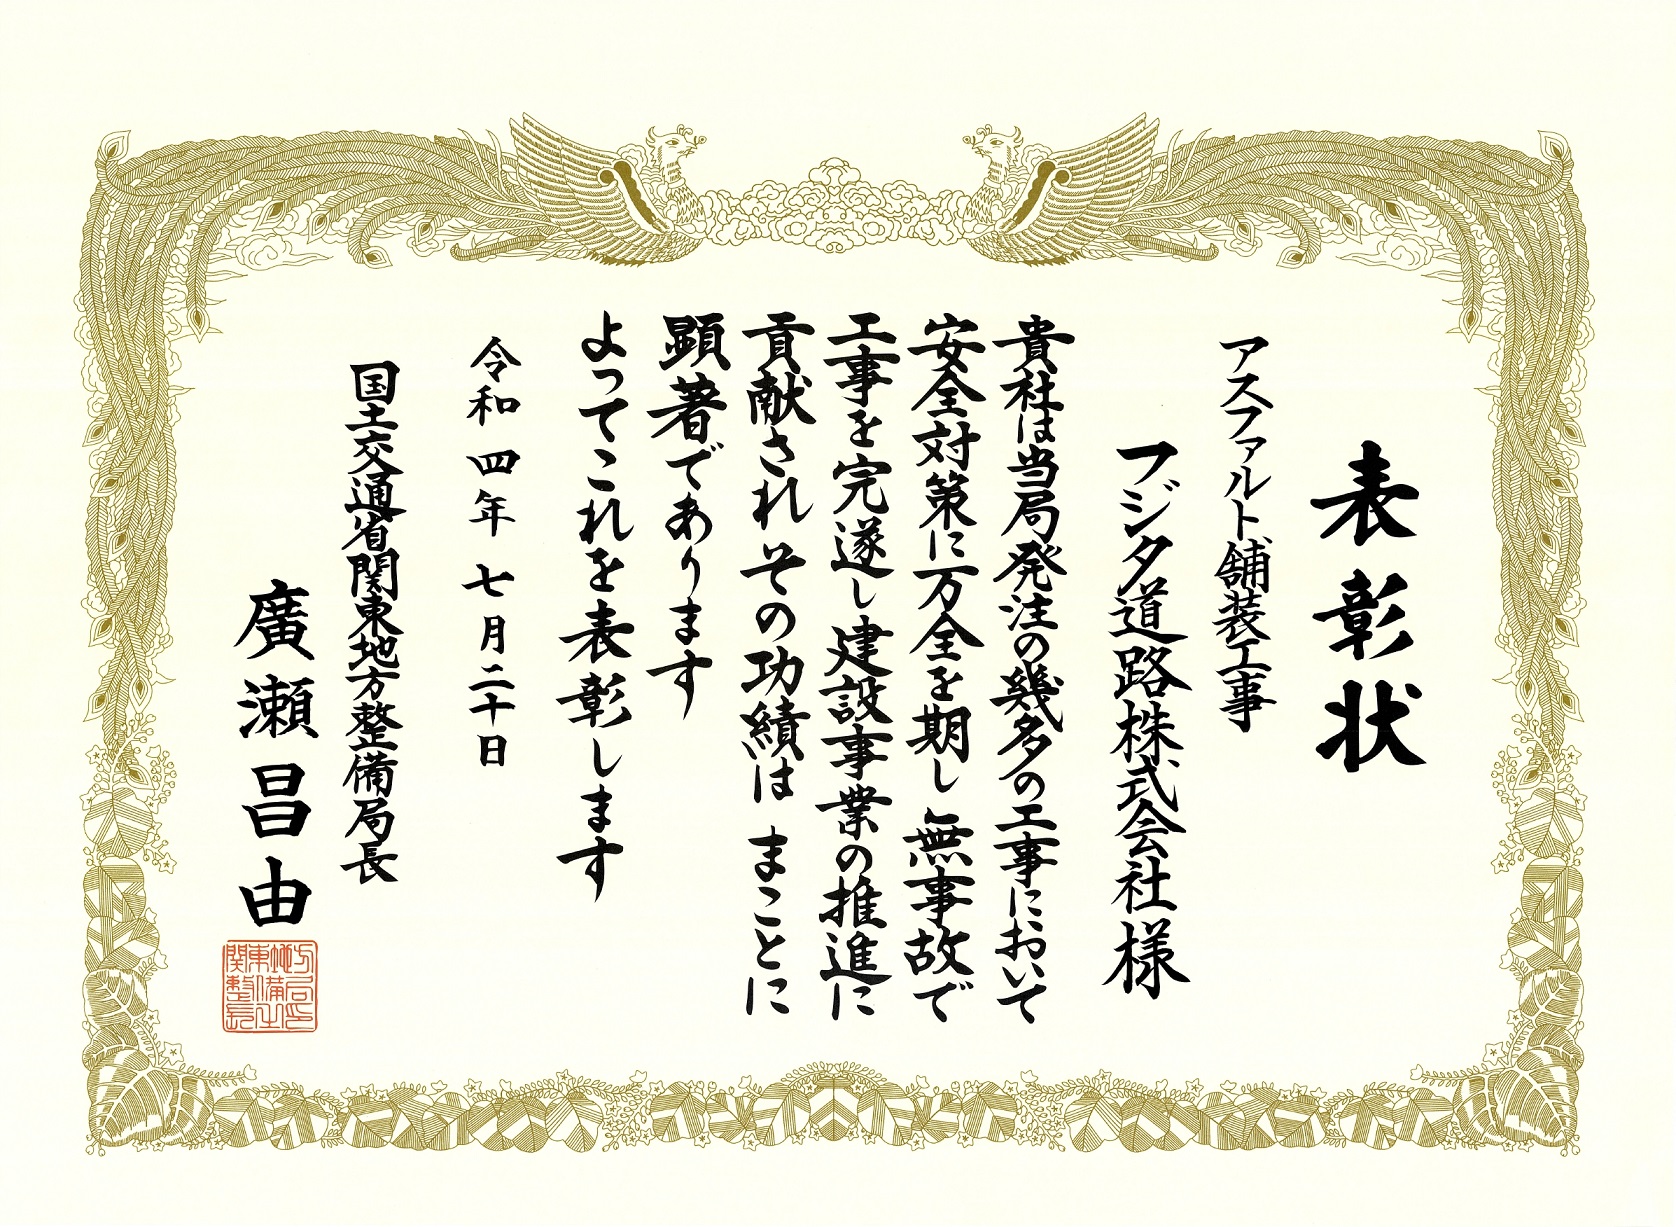 表彰状
アスファルト舗装工事
フジタ道路株式会社様
貴社は当局発注の幾多の工事において
安全対策に万全を期し無事故で
工事を完遂し建設事業の推進に
貢献されその功績はまことに
顕著であります
よってこれを表彰します
令和四年七月二十日
国土交通省関東地方整備局長
廣瀬昌由